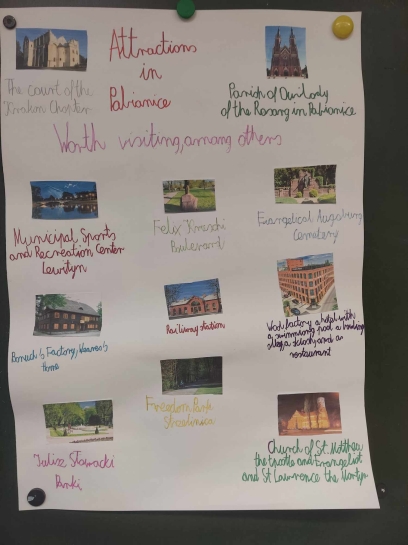 Attractions
in
Pabianice
The court of the
Krakow Chapter
Parish of Our Lady
of the Rosary in Pabianice
Worth visiting, among others
Municipal Sports
and Recreation Center
Lewityn
Felix
Bulevard
Evangelical Augsburg
Cemetery
Factory, Weavers
home
Railway station
factory a help with
a swimming pool a bowling
and as
restaurant
Freedom Park
Strzelnica
Juliusz Słowacki
Parki
Church of St. Matthew
the Apostle and Evangelist
and St Lawrence the Martyr